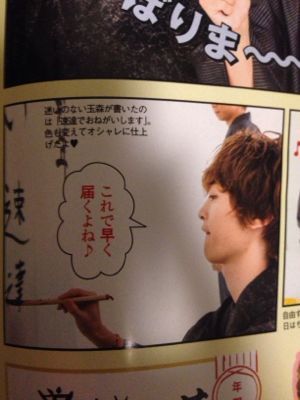 ぱりま〜〜
迷いのない玉森が書いたの
は「速達でおねがいします」。
色も変えてオシャレに仕上
げたよ♥
これで早く
届くよね♪
い
速達
自由
日は
年